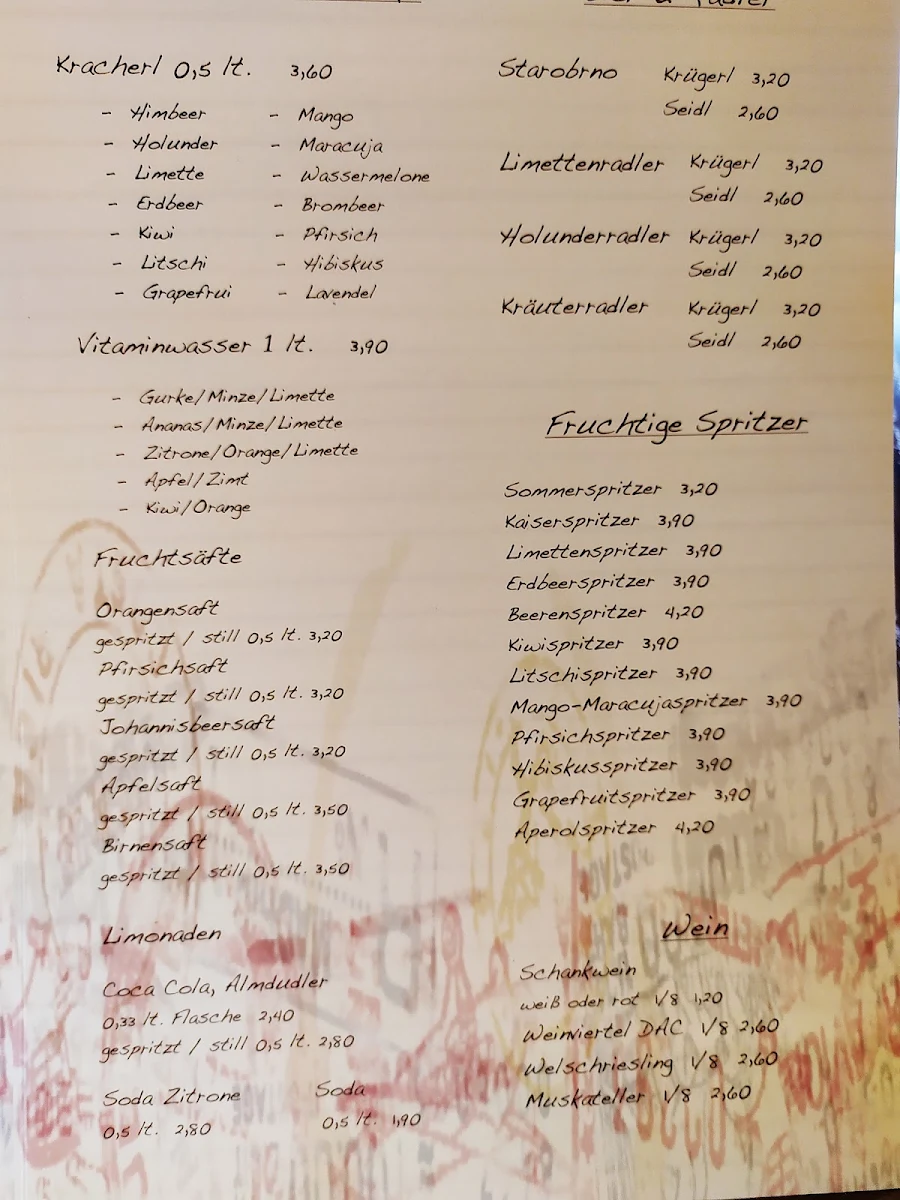 Kracherl 0,5 lt. 3,60
- Himbeer - Mango
- Holunder - Maracuja
- Limette - Wassermelone
- Erdbeer - Brombeer
- Kiwi - Pfirsich
- Litschi - Hibiskus
- Grapefrui - Lavendel
Vitaminwasser 1 lt. 3,90
- Gurke/Minze/Limette
- Ananas/Minze/Limette
- Zitrone/Orange/Limette
- Apfel/Zimt
- Kiwi/Orange
Fruchtsäfte
Orangensaft
gespritzt / still 0,5 lt. 3,20
Pfirsichsaft
gespritzt / still 0,5 lt. 3,20
Johannisbeersaft
gespritzt / still 0,5 lt. 3,20
Apfelsaft
gespritzt / still 0,5 lt. 3,50
Birnensaft
gespritzt / still 0,5 lt. 3,50
Limonaden
Coca Cola, Almdudler
0,33 lt. Flasche 2,40
gespritzt / still 0,5 lt. 2,80
Soda Zitrone Soda
0,5 lt. 2,80 0,5 lt. 1,90
Starobrno Krügerl 3,20
Seidl 2,60
Limettenradler Krügerl 3,20
Seidl 2,60
Holunderradler Krügerl 3,20
Seidl 2,60
Kräuterradler Krügerl 3,20
Seidl 2,60
Fruchtige Spritzer
Sommerspritzer 3,20
Kaiserspritzer 3,90
Limettenspritzer 3,90
Erdbeerspritzer 3,90
Beerenspritzer 4,20
Kiwispritzer 3,90
Litschispritzer 3,90
Mango-Maracujaspritzer 3,90
Pfirsichspritzer 3,90
Hibiskusspritzer 3,90
Grapefruitspritzer 3,90
Aperolspritzer 4,20
Wein
Schankwein
weiß oder rot 1/8 1,20
Weinviertel DAC 1/8 2,60
Welschriesling 1/8 2,60
Muskateller 1/8 2,60